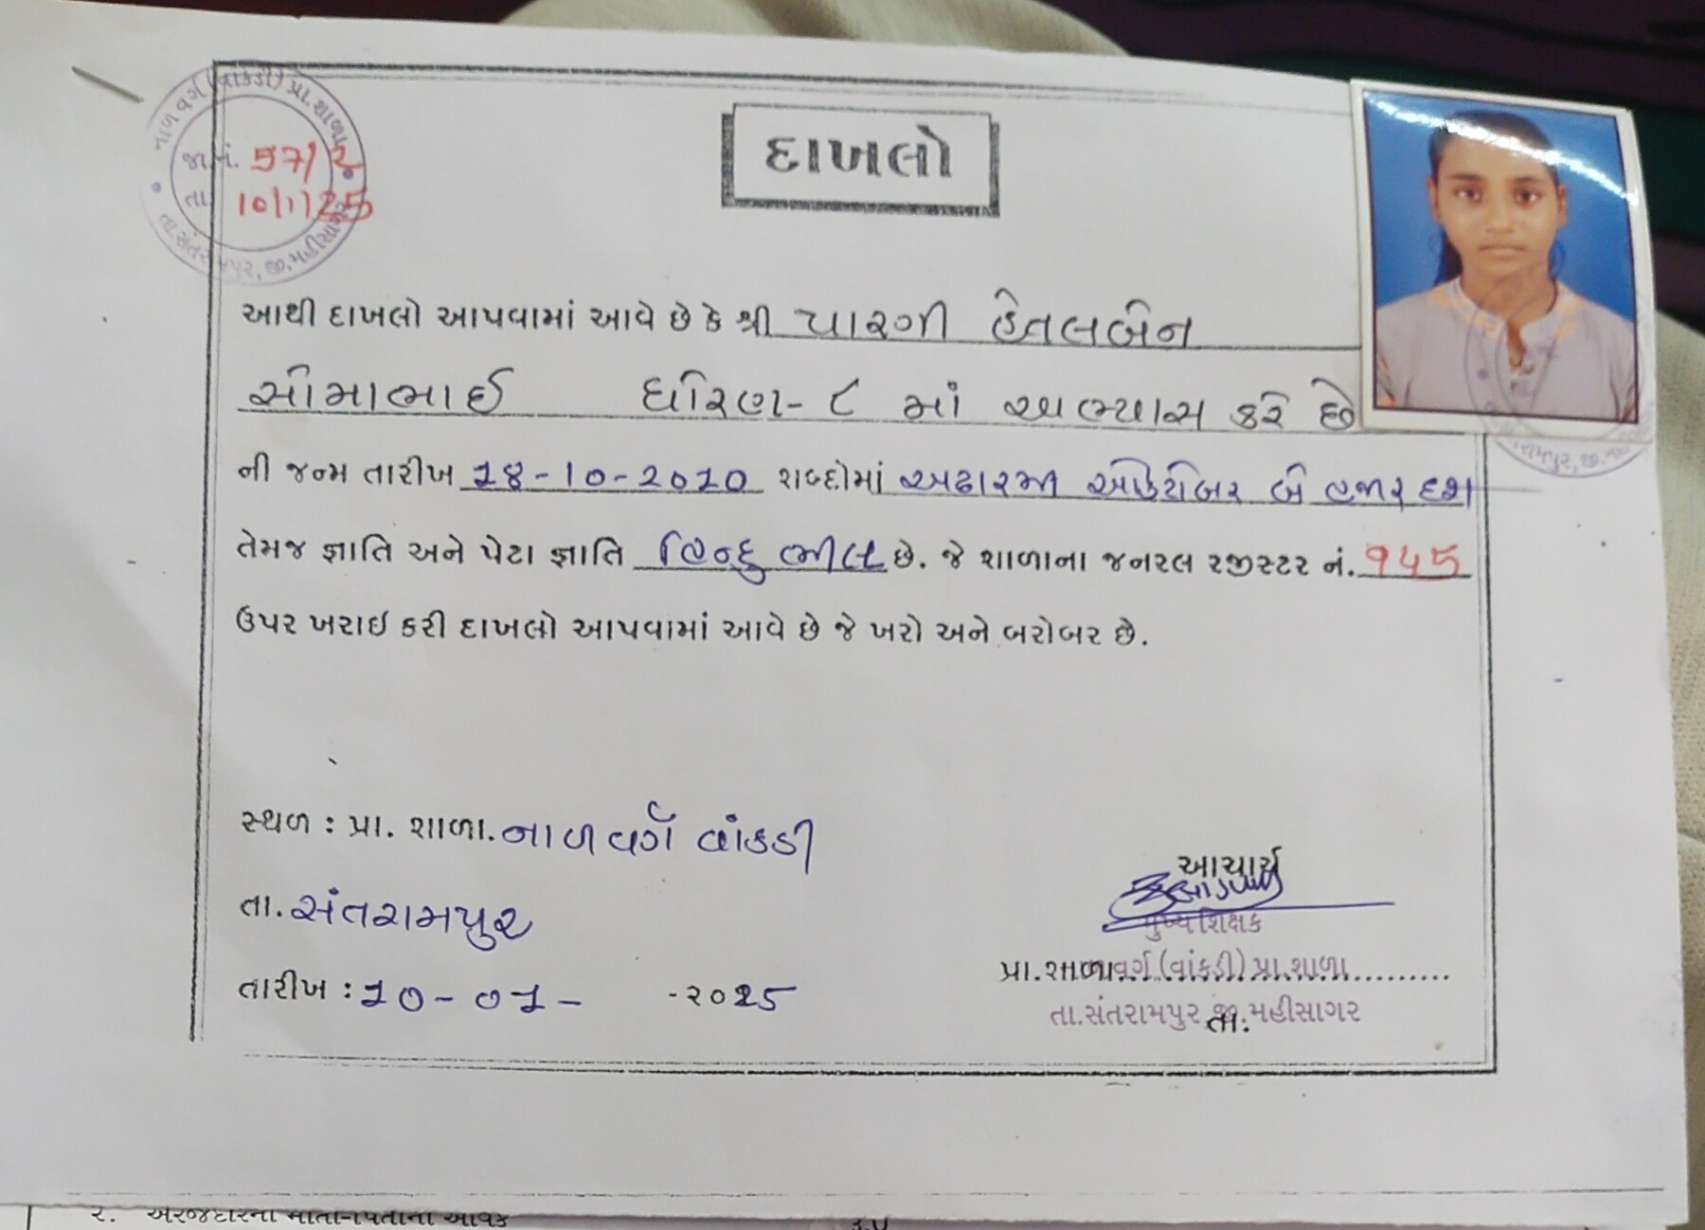 નાળ વર્ગ (વાંકડી) પ્રા. શાળા
જા.નં. 57/2
તા. 10/1/25
તા.સંતરામપુર, જી.મહીસાગર
દાખલો
આથી દાખલો આપવામાં આવે છે કે શ્રી પારગી હેતલબેન
સોમાભાઈ ધોરણ- ૮ માં અભ્યાસ કરે છે
ની જન્મ તારીખ 18-10-2010 શબ્દોમાં અઢારમી ઓક્ટોબર બે હજાર દશ
તેમજ જ્ઞાતિ અને પેટા જ્ઞાતિ હિન્દુ ભીલ છે. જે શાળાના જનરલ રજીસ્ટર નં. ૧45
ઉપર ખરાઇ કરી દાખલો આપવામાં આવે છે જે ખરો અને બરોબર છે.
સ્થળ : પ્રા. શાળા. નાળ વર્ગ વાંકડી
તા. સંતરામપુર
તારીખ : 10-01- -૨૦25
આચાર્ય
મુખ્ય શિક્ષક
પ્રા.શાળા વર્ગ (વાંકડી) પ્રા.શાળા
તા.સંતરામપુર જી.મહીસાગર
તા.
૨. અરજદારના માતા-પિતાની આવક